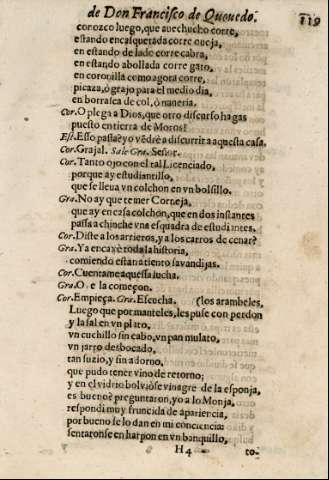 de Don Francisco de Quevedo. 119
conozco luego, que auechucho corre,
estando encasquetada corre oueja,
en estando de lado corre cabra,
en estando abollada corre gato,
en coronilla como agora corre,
picaza, ò grajo para el medio dia,
en borrasca de col, ò naneria.
Cor. O plega a Dios, que otro discurso hagas
puesto en tierra de Moros!
Esf. Esso passa? yo vẽdrè a discurrir a aquesta casa.
Cor. Grajal. Sale Gra. Señor.
Cor. Tanto ojo con el tal Licenciado,
porque ay estudiantillo,
que se lleua vn colchon en vn bolsillo.
Gra. No ay que temer Corneja,
que ay en casa colchon, que en dos instantes
passa a chinche vna esquadra de estudiantes.
Cor. Diste a los arrieros, y a los carros de cenar?
Gra. Ya encaxè toda la historia,
comiendo estan a tiento sauandijas.
Cor. Cuentame aquessa lucha.
Gra. O. e la começon.
Cor. Empieça. Gra. Escucha. (los arambeles,
Luego que por manteles, les puse con perdon
y la sal en vn plato,
vn cuchillo sin cabo, vn pan mulato,
vn jarro desbocado,
tan suzio, y sin adorno,
que pudo tener vino de retorno;
y en el vidrio boluiòse vinagre de la esponja,
es bueno? preguntaron, yo a lo Monja,
respondi muy fruncida de apariencia,
por bueno se lo dan en mi conciencia:
sentaronse en harpon en vn banquillo,
H4 to-